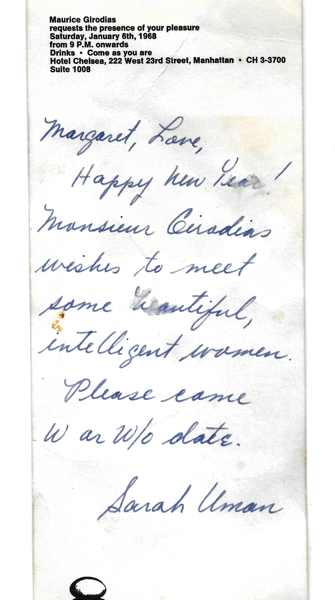 Maurice Girodias
requests the presence of your pleasure
Saturday, January 6th, 1968
from 9 P.M. onwards
Drinks • Come as you are
Hotel Chelsea, 222 West 23rd Street, Manhattan • CH 3-3700
Suite 1008
Margaret, Love,
Happy New Year!
Monsieur Girodias
wishes to meet
some beautiful,
intelligent women.
Please come
W or W/o date.
Sarah Uman